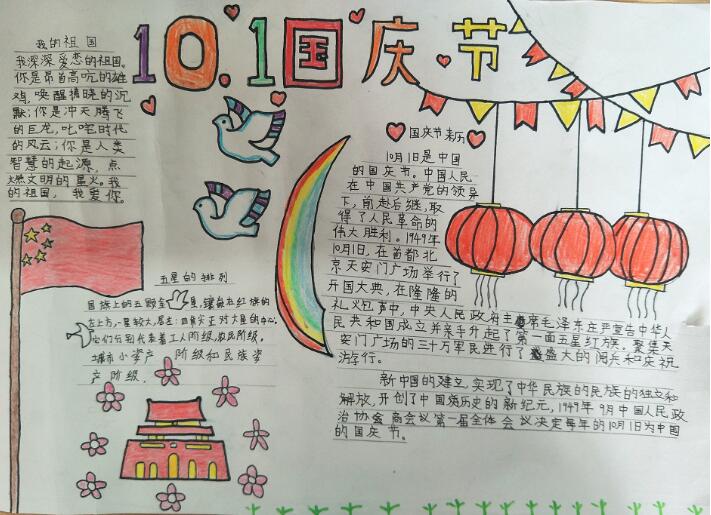 10.1国庆节
我的祖国
我深深爱恋的祖国。
你是昂首高吭的雄
鸡,唤醒拂晓的沉
默;你是冲天腾飞
的巨龙,叱咤时代
的风云;你是人类
智慧的起源,点
燃文明的星火。我
的祖国,我爱你。
五星的排列
国旗上的五颗金星,镶在红旗的
左上方,一星较大,居左;四角尖正对大星的中心。
它们分别代表着工人阶级,农民阶级。
城市小资产阶级和民族资
产阶级.
国庆节来历
10月1日是中国
的国庆节。中国人民
在中国共产党的领导
下,前赴后继,取
得了人民革命的
伟大胜利。1949年
10月1日,在首都北
京天安门广场举行了
开国大典,在隆隆的
礼火包声中,中央人民政府主席毛泽东庄严宣告中华人
民共和国成立并亲手升起了第一面五星红旗。聚集天
安门广场的三十万军民进行了盛大的阅兵和庆祝
游行。
新中国的建立,实现了中华民族的民族的独立和
解放,开创了中国历史的新纪元,1949年9月中国人民政
治协商会议第一届全体会议决定每年的10月1日为中国
的国庆节。